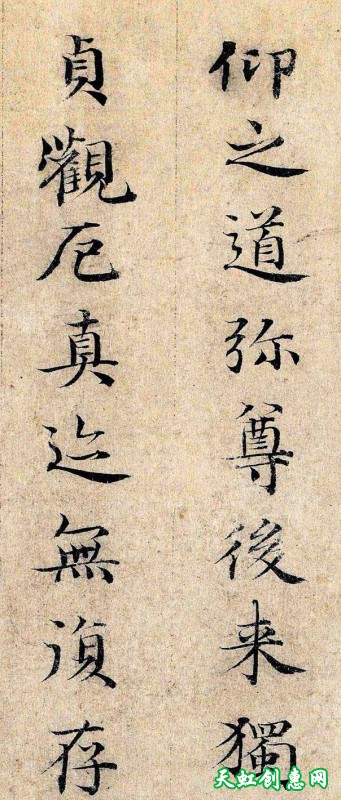 仰之道弥尊後来獨
貞觀厄真迹無湏存
天虹创惠网